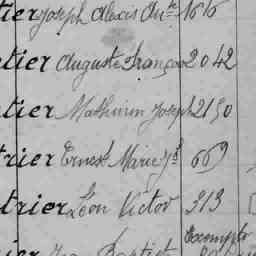 tier Joseph Alexis Aug.te 1616
tier Auguste François 2042
tier Mathurin Joseph 2150
trier Ernest Marie J.h 669
trier Léon Victor 313
Exempté
ier Baptiste